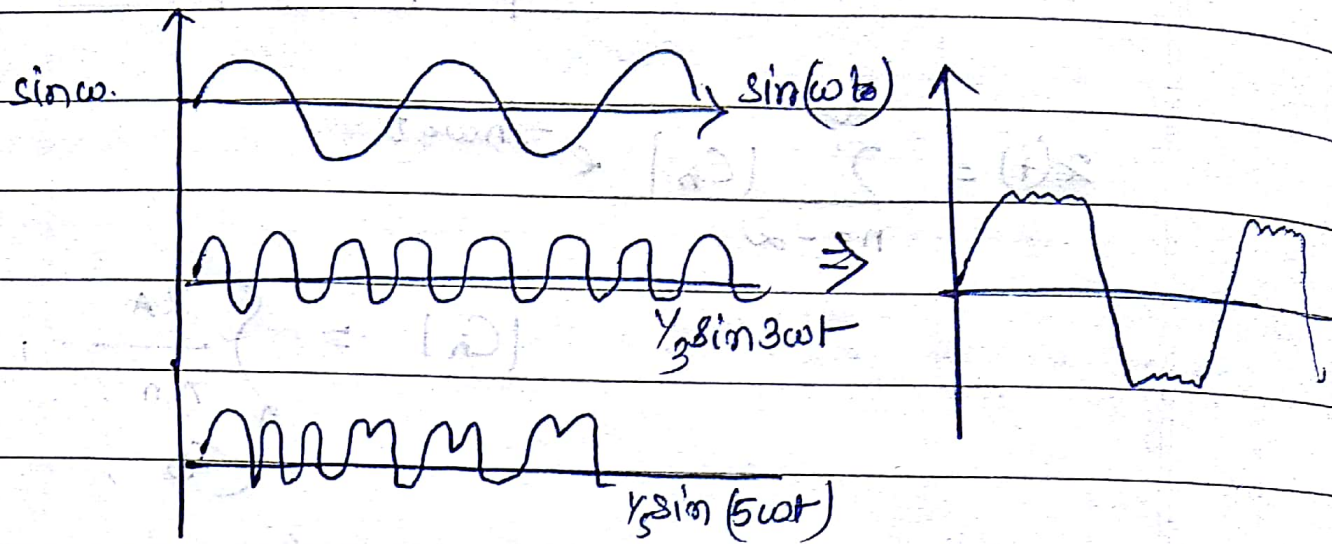 sinω.
sin(ωt)
⇒
1/3 sin 3ωt
1/5 sin (5ωt)